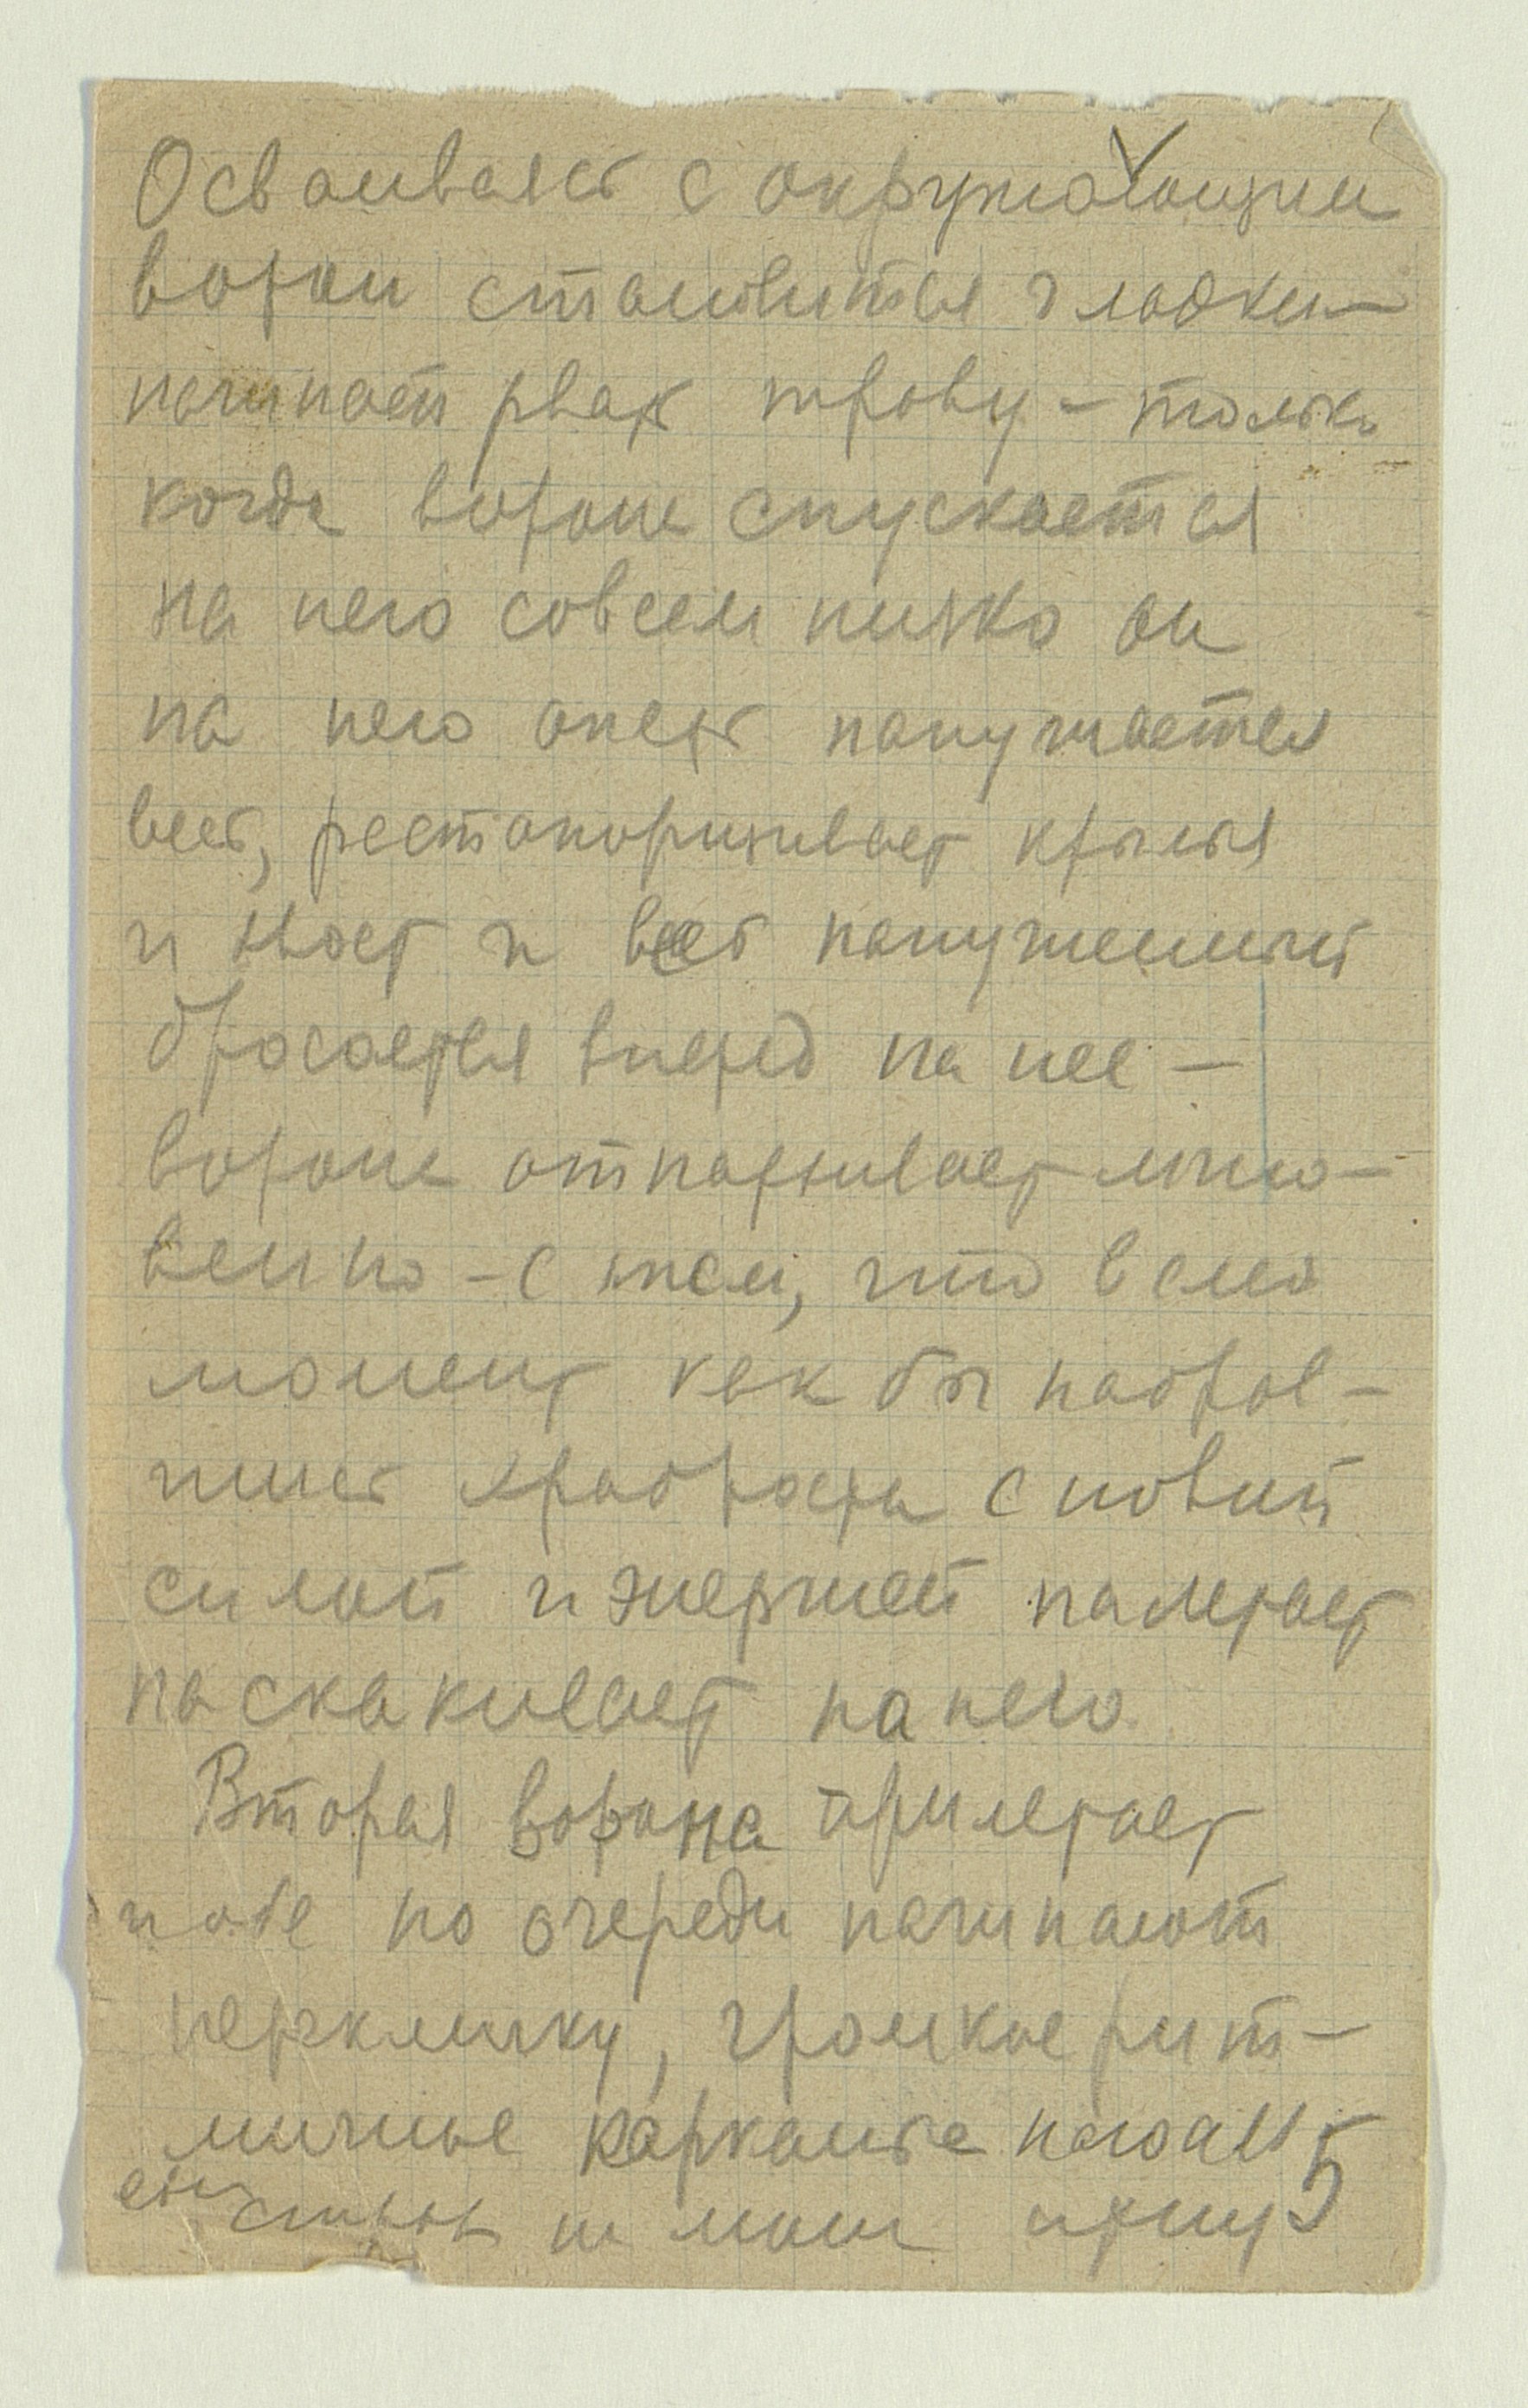 Осваиваясь с окружающим
ворон становится гладким
начинает рвать траву – только
когда ворона спускается
на него совсем низко он
на нее опять напужается
весь, растопоршивает крылья
и хвост и весь напуженный
бросается вперед на нее –
ворона отпархивает мгно-
венно – с тем, что в сл
момент как бы набрав-
шись храбрости с новой
силой и энергией налетает
наскакивает на него.
Вторая ворона прилетает
и обе по очереди начинают
перекличку, громкое рит-
мичное карканье
5